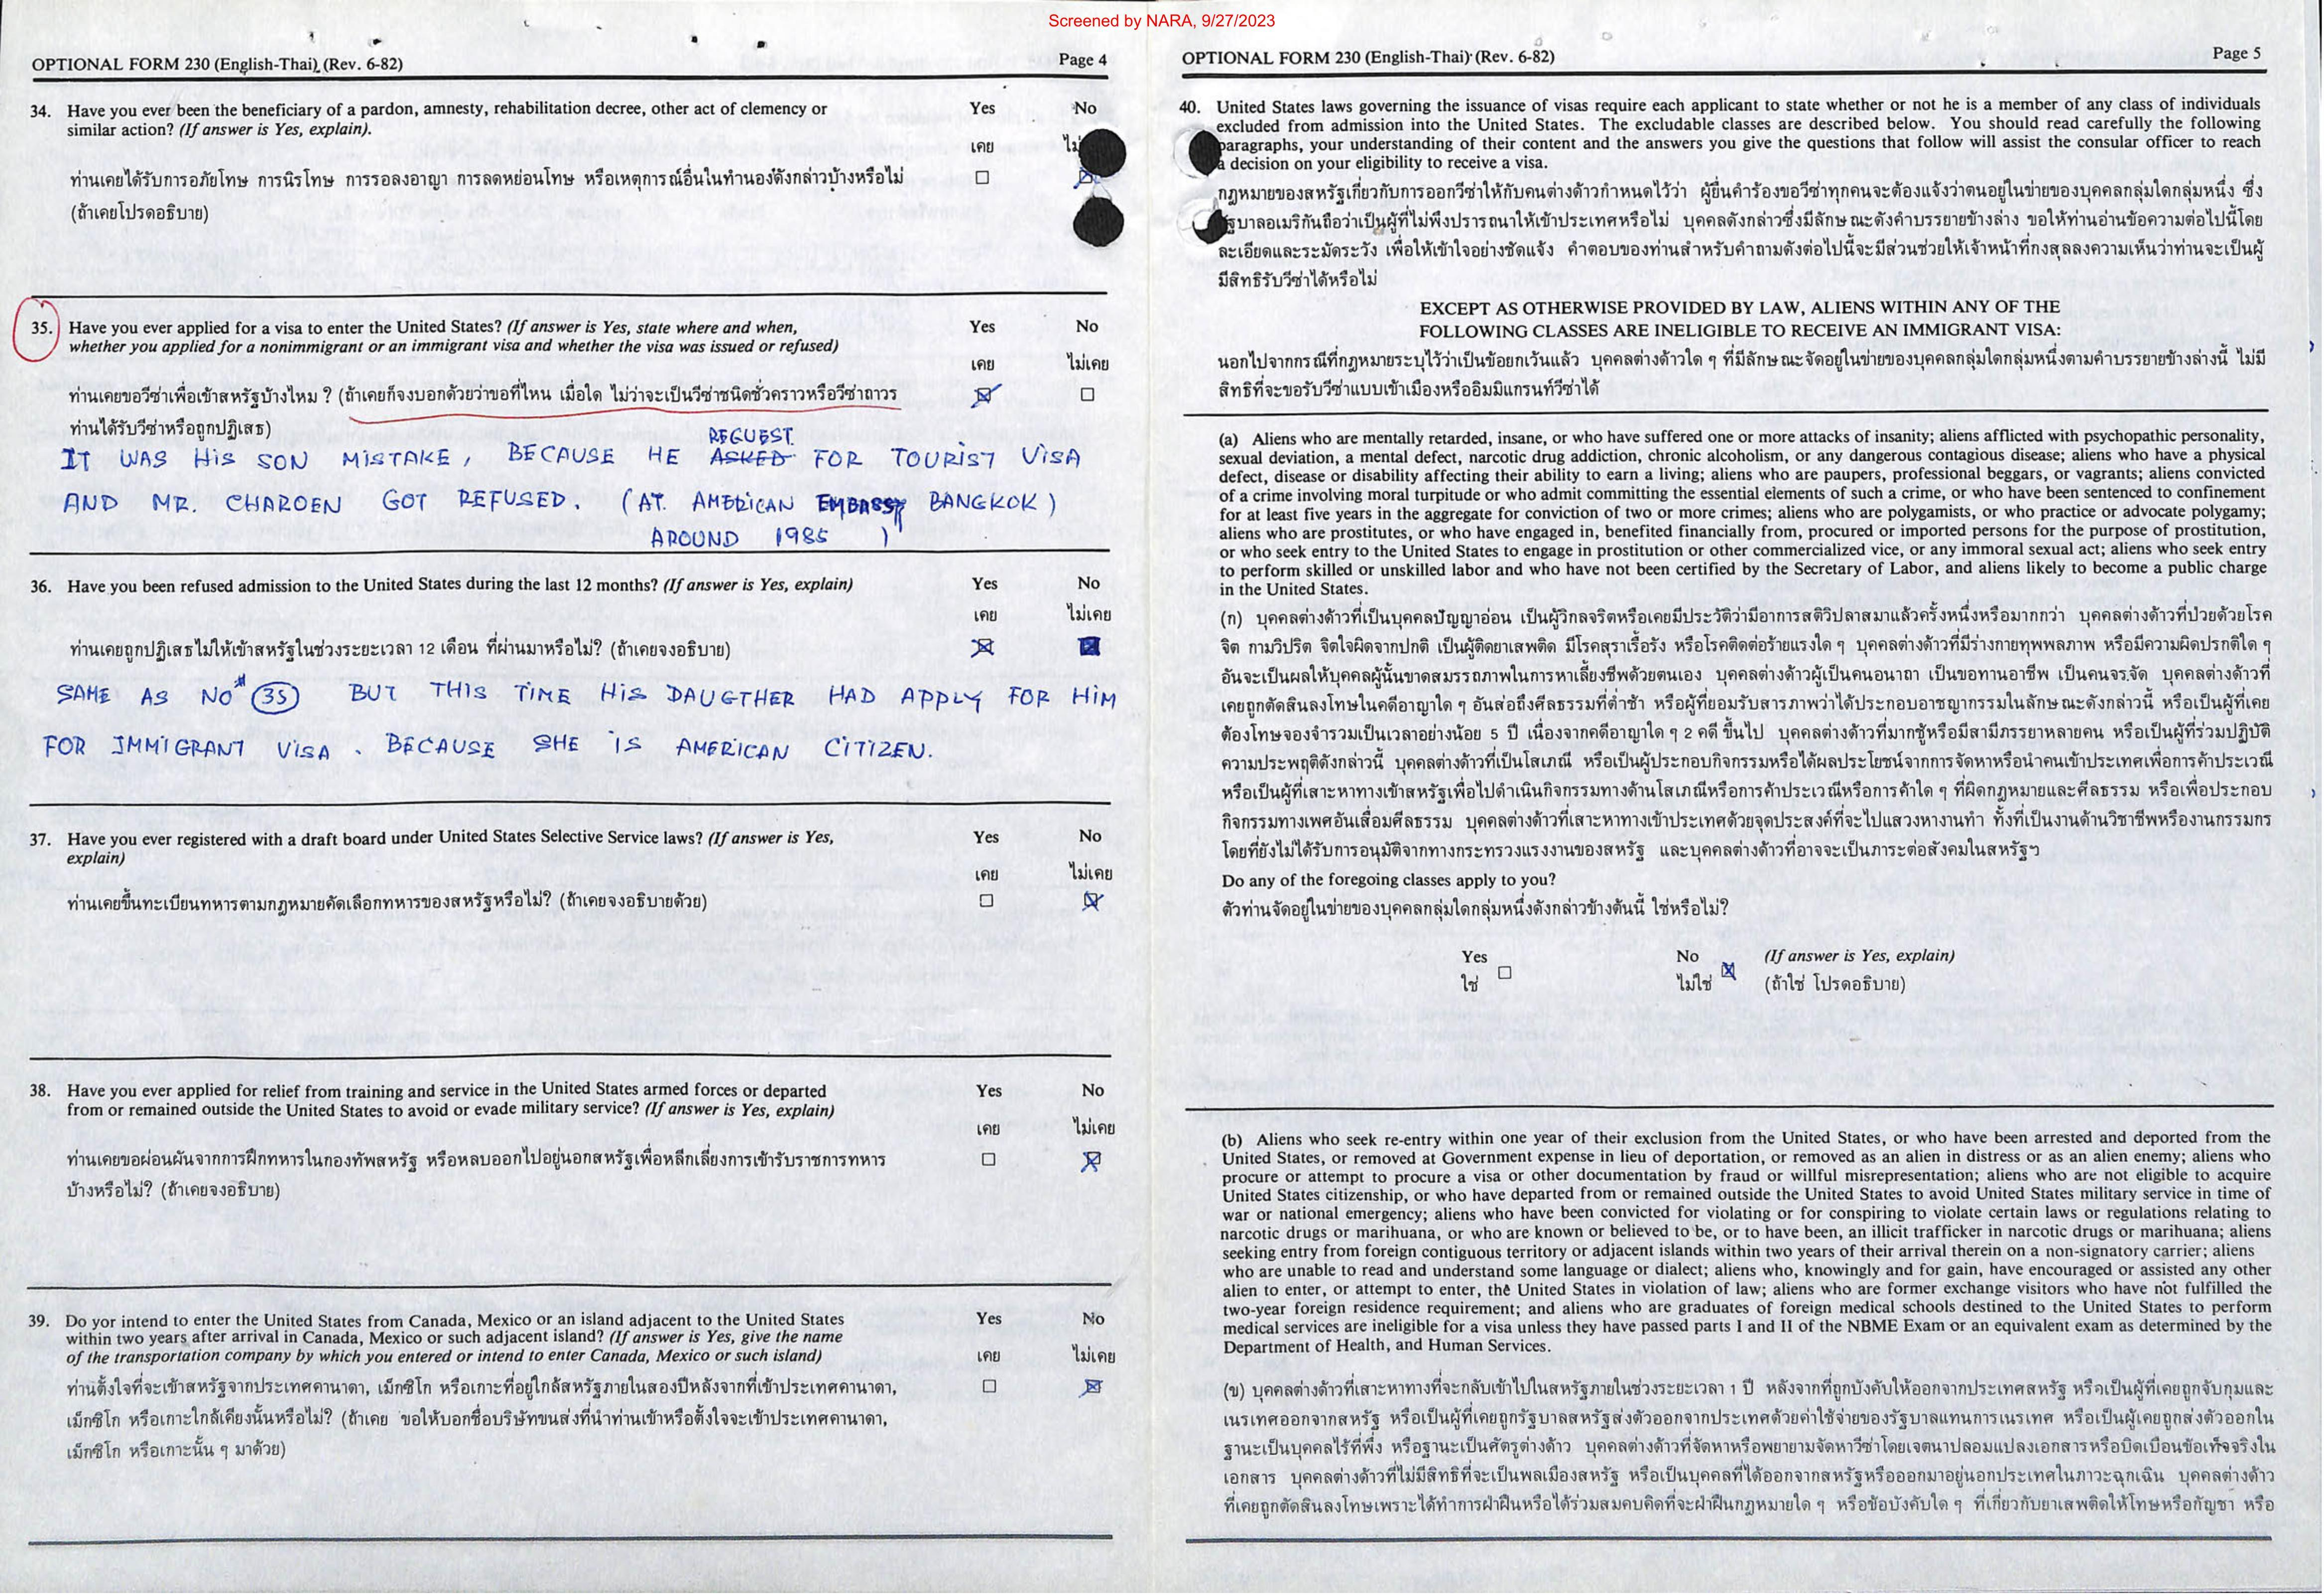 Screened by NARA, 9/27/2023
OPTIONAL FORM 230 (English-Thai) (Rev. 6-82) Page 4
34. Have you ever been the beneficiary of a pardon, amnesty, rehabilitation decree, other act of clemency or Yes No
similar action? (If answer is Yes, explain).
เคย
ท่านเคยได้รับการอภัยโทษ การนิรโทษ การรอลงอาญา การลดหย่อนโทษ หรือเหตุการณ์อื่นในทำนองดังกล่าวบ้างหรือไม่
(ถ้าเคยโปรดอธิบาย)
35. Have you ever applied for a visa to enter the United States? (If answer is Yes, state where and when, Yes No
whether you applied for a nonimmigrant or an immigrant visa and whether the visa was issued or refused)
เคย ไม่เคย
ท่านเคยขอวีซ่าเพื่อเข้าสหรัฐบ้างไหม ? (ถ้าเคยก็จงบอกด้วยว่าขอที่ไหน เมื่อใด ไม่ว่าจะเป็นวีซ่าชนิดชั่วคราวหรือวีซ่าถาวร
ท่านได้รับวีซ่าหรือถูกปฏิเสธ)
REGUEST
IT WAS HIS SON MISTAKE, BECAUSE HE ASKED FOR TOURIST VISA
AND MR. CHAROEN GOT REFUSED. (AT. AMERICAN EMBASSY BANGKOK)
AROUND 1985 )
36. Have you been refused admission to the United States during the last 12 months? (If answer is Yes, explain) Yes No
เคย ไม่เคย
ท่านเคยถูกปฏิเสธไม่ให้เข้าสหรัฐในช่วงระยะเวลา 12 เดือน ที่ผ่านมาหรือไม่? (ถ้าเคยจงอธิบาย)
SAME AS NO# 35 BUT THIS TIME HIS DAUGTHER HAD APPLY FOR HIM
FOR IMMIGRANT VISA. BECAUSE SHE IS AMERICAN CITIZEN.
37. Have you ever registered with a draft board under United States Selective Service laws? (If answer is Yes, Yes No
explain)
เคย ไม่เคย
ท่านเคยขึ้นทะเบียนทหารตามกฎหมายคัดเลือกทหารของสหรัฐหรือไม่? (ถ้าเคยจงอธิบายด้วย)
38. Have you ever applied for relief from training and service in the United States armed forces or departed Yes No
from or remained outside the United States to avoid or evade military service? (If answer is Yes, explain)
เคย ไม่เคย
ท่านเคยขอผ่อนผันจากการฝึกทหารในกองทัพสหรัฐ หรือหลบออกไปอยู่นอกสหรัฐเพื่อหลีกเลี่ยงการเข้ารับราชการทหาร
บ้างหรือไม่? (ถ้าเคยจงอธิบาย)
39. Do yor intend to enter the United States from Canada, Mexico or an island adjacent to the United States Yes No
within two years after arrival in Canada, Mexico or such adjacent island? (If answer is Yes, give the name
of the transportation company by which you entered or intend to enter Canada, Mexico or such island)
เคย ไม่เคย
ท่านตั้งใจที่จะเข้าสหรัฐจากประเทศคานาดา, เม็กซิโก หรือเกาะที่อยู่ใกล้สหรัฐภายในสองปีหลังจากที่เข้าประเทศคานาดา,
เม็กซิโก หรือเกาะใกล้เคียงนั้นหรือไม่? (ถ้าเคย ขอให้บอกชื่อบริษัทขนส่งที่นำท่านเข้าหรือตั้งใจจะเข้าประเทศคานาดา,
เม็กซิโก หรือเกาะนั้น ๆ มาด้วย)
OPTIONAL FORM 230 (English-Thai) (Rev. 6-82) Page 5
40. United States laws governing the issuance of visas require each applicant to state whether or not he is a member of any class of individuals
excluded from admission into the United States. The excludable classes are described below. You should read carefully the following
paragraphs, your understanding of their content and the answers you give the questions that follow will assist the consular officer to reach
a decision on your eligibility to receive a visa.
กฎหมายของสหรัฐเกี่ยวกับการออกวีซ่าให้กับคนต่างด้าวกำหนดไว้ว่า ผู้ยื่นคำร้องขอวีซ่าทุกคนจะต้องแจ้งว่าตนอยู่ในข่ายของบุคคลกลุ่มใดกลุ่มหนึ่ง ซึ่ง
รัฐบาลอเมริกันถือว่าเป็นผู้ที่ไม่พึงปรารถนาให้เข้าประเทศหรือไม่ บุคคลดังกล่าวซึ่งมีลักษณะดังคำบรรยายข้างล่าง ขอให้ท่านอ่านข้อความต่อไปนี้โดย
ละเอียดและระมัดระวัง เพื่อให้เข้าใจอย่างชัดแจ้ง คำตอบของท่านสำหรับคำถามดังต่อไปนี้จะมีส่วนช่วยให้เจ้าหน้าที่กงสุลลงความเห็นว่าท่านจะเป็นผู้
มีสิทธิรับวีซ่าได้หรือไม่
EXCEPT AS OTHERWISE PROVIDED BY LAW, ALIENS WITHIN ANY OF THE
FOLLOWING CLASSES ARE INELIGIBLE TO RECEIVE AN IMMIGRANT VISA:
นอกไปจากกรณีที่กฎหมายระบุไว้ว่าเป็นข้อยกเว้นแล้ว บุคคลต่างด้าวใด ๆ ที่มีลักษณะจัดอยู่ในข่ายของบุคคลกลุ่มใดกลุ่มหนึ่งตามคำบรรยายข้างล่างนี้ ไม่มี
สิทธิที่จะขอรับวีซ่าแบบเข้าเมืองหรืออิมมิแกรนท์วีซ่าได้
(a) Aliens who are mentally retarded, insane, or who have suffered one or more attacks of insanity; aliens afflicted with psychopathic personality,
sexual deviation, a mental defect, narcotic drug addiction, chronic alcoholism, or any dangerous contagious disease; aliens who have a physical
defect, disease or disability affecting their ability to earn a living; aliens who are paupers, professional beggars, or vagrants; aliens convicted
of a crime involving moral turpitude or who admit committing the essential elements of such a crime, or who have been sentenced to confinement
for at least five years in the aggregate for conviction of two or more crimes; aliens who are polygamists, or who practice or advocate polygamy;
aliens who are prostitutes, or who have engaged in, benefited financially from, procured or imported persons for the purpose of prostitution,
or who seek entry to the United States to engage in prostitution or other commercialized vice, or any immoral sexual act; aliens who seek entry
to perform skilled or unskilled labor and who have not been certified by the Secretary of Labor, and aliens likely to become a public charge
in the United States.
(ก) บุคคลต่างด้าวที่เป็นบุคคลปัญญาอ่อน เป็นผู้วิกลจริตหรือเคยมีประวัติว่ามีอาการสติวิปลาสมาแล้วครั้งหนึ่งหรือมากกว่า บุคคลต่างด้าวที่ป่วยด้วยโรค
จิต กามวิปริต จิตใจผิดจากปกติ เป็นผู้ติดยาเสพติด มีโรคสุราเรื้อรัง หรือโรคติดต่อร้ายแรงใด ๆ บุคคลต่างด้าวที่มีร่างกายทุพพลภาพ หรือมีความผิดปรกติใด ๆ
อันจะเป็นผลให้บุคคลผู้นั้นขาดสมรรถภาพในการหาเลี้ยงชีพด้วยตนเอง บุคคลต่างด้าวผู้เป็นคนอนาถา เป็นขอทานอาชีพ เป็นคนจรจัด บุคคลต่างด้าวที่
เคยถูกตัดสินลงโทษในคดีอาญาใด ๆ อันส่อถึงศีลธรรมที่ต่ำช้า หรือผู้ที่ยอมรับสารภาพว่าได้ประกอบอาชญากรรมในลักษณะดังกล่าวนี้ หรือเป็นผู้ที่เคย
ต้องโทษจองจำรวมเป็นเวลาอย่างน้อย 5 ปี เนื่องจากคดีอาญาใด ๆ 2 คดี ขึ้นไป บุคคลต่างด้าวที่มากชู้หรือมีสามีภรรยาหลายคน หรือเป็นผู้ที่ร่วมปฏิบัติ
ความประพฤติดังกล่าวนี้ บุคคลต่างด้าวที่เป็นโสเภณี หรือเป็นผู้ประกอบกิจกรรมหรือได้ผลประโยชน์จากการจัดหาหรือนำคนเข้าประเทศเพื่อการค้าประเวณี
หรือเป็นผู้ที่เสาะหาทางเข้าสหรัฐเพื่อไปดำเนินกิจกรรมทางด้านโสเภณีหรือการค้าประเวณีหรือการค้าใด ๆ ที่ผิดกฎหมายและศีลธรรม หรือเพื่อประกอบ
กิจกรรมทางเพศอันเสื่อมศีลธรรม บุคคลต่างด้าวที่เสาะหาทางเข้าประเทศด้วยจุดประสงค์ที่จะไปแสวงหางานทำ ทั้งที่เป็นงานด้านวิชาชีพหรืองานกรรมกร
โดยที่ยังไม่ได้รับการอนุมัติจากทางกระทรวงแรงงานของสหรัฐ และบุคคลต่างด้าวที่อาจจะเป็นภาระต่อสังคมในสหรัฐฯ
Do any of the foregoing classes apply to you?
ตัวท่านจัดอยู่ในข่ายของบุคคลกลุ่มใดกลุ่มหนึ่งดังกล่าวข้างต้นนี้ ใช่หรือไม่?
Yes No (If answer is Yes, explain)
ใช่ ไม่ใช่ (ถ้าใช่ โปรดอธิบาย)
(b) Aliens who seek re-entry within one year of their exclusion from the United States, or who have been arrested and deported from the
United States, or removed at Government expense in lieu of deportation, or removed as an alien in distress or as an alien enemy; aliens who
procure or attempt to procure a visa or other documentation by fraud or willful misrepresentation; aliens who are not eligible to acquire
United States citizenship, or who have departed from or remained outside the United States to avoid United States military service in time of
war or national emergency; aliens who have been convicted for violating or for conspiring to violate certain laws or regulations relating to
narcotic drugs or marihuana, or who are known or believed to be, or to have been, an illicit trafficker in narcotic drugs or marihuana; aliens
seeking entry from foreign contiguous territory or adjacent islands within two years of their arrival therein on a non-signatory carrier; aliens
who are unable to read and understand some language or dialect; aliens who, knowingly and for gain, have encouraged or assisted any other
alien to enter, or attempt to enter, the United States in violation of law; aliens who are former exchange visitors who have not fulfilled the
two-year foreign residence requirement; and aliens who are graduates of foreign medical schools destined to the United States to perform
medical services are ineligible for a visa unless they have passed parts I and II of the NBME Exam or an equivalent exam as determined by the
Department of Health, and Human Services.
(ข) บุคคลต่างด้าวที่เสาะหาทางที่จะกลับเข้าไปในสหรัฐภายในช่วงระยะเวลา 1 ปี หลังจากที่ถูกบังคับให้ออกจากประเทศสหรัฐ หรือเป็นผู้ที่เคยถูกจับกุมและ
เนรเทศออกจากสหรัฐ หรือเป็นผู้ที่เคยถูกรัฐบาลสหรัฐส่งตัวออกจากประเทศด้วยค่าใช้จ่ายของรัฐบาลแทนการเนรเทศ หรือเป็นผู้เคยถูกส่งตัวออกใน
ฐานะเป็นบุคคลไร้ที่พึ่ง หรือฐานะเป็นศัตรูต่างด้าว บุคคลต่างด้าวที่จัดหาหรือพยายามจัดหาวีซ่าโดยเจตนาปลอมแปลงเอกสารหรือบิดเบือนข้อเท็จจริงใน
เอกสาร บุคคลต่างด้าวที่ไม่มีสิทธิที่จะเป็นพลเมืองสหรัฐ หรือเป็นบุคคลที่ได้ออกจากสหรัฐหรือออกมาอยู่นอกประเทศในภาวะฉุกเฉิน บุคคลต่างด้าว
ที่เคยถูกตัดสินลงโทษเพราะได้ทำการฝ่าฝืนหรือได้ร่วมสมคบคิดที่จะฝ่าฝืนกฎหมายใด ๆ หรือข้อบังคับใด ๆ ที่เกี่ยวกับยาเสพติดให้โทษหรือกัญชา หรือ